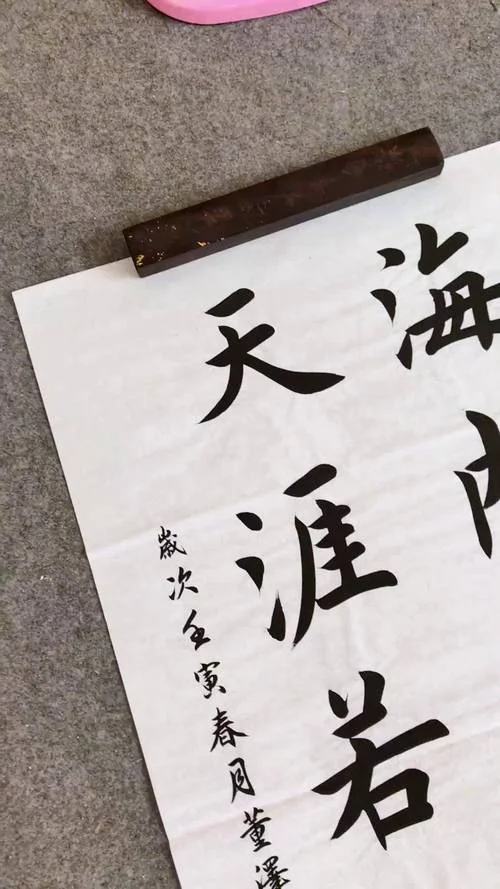 海内
天涯若
歲次壬寅春月董澤